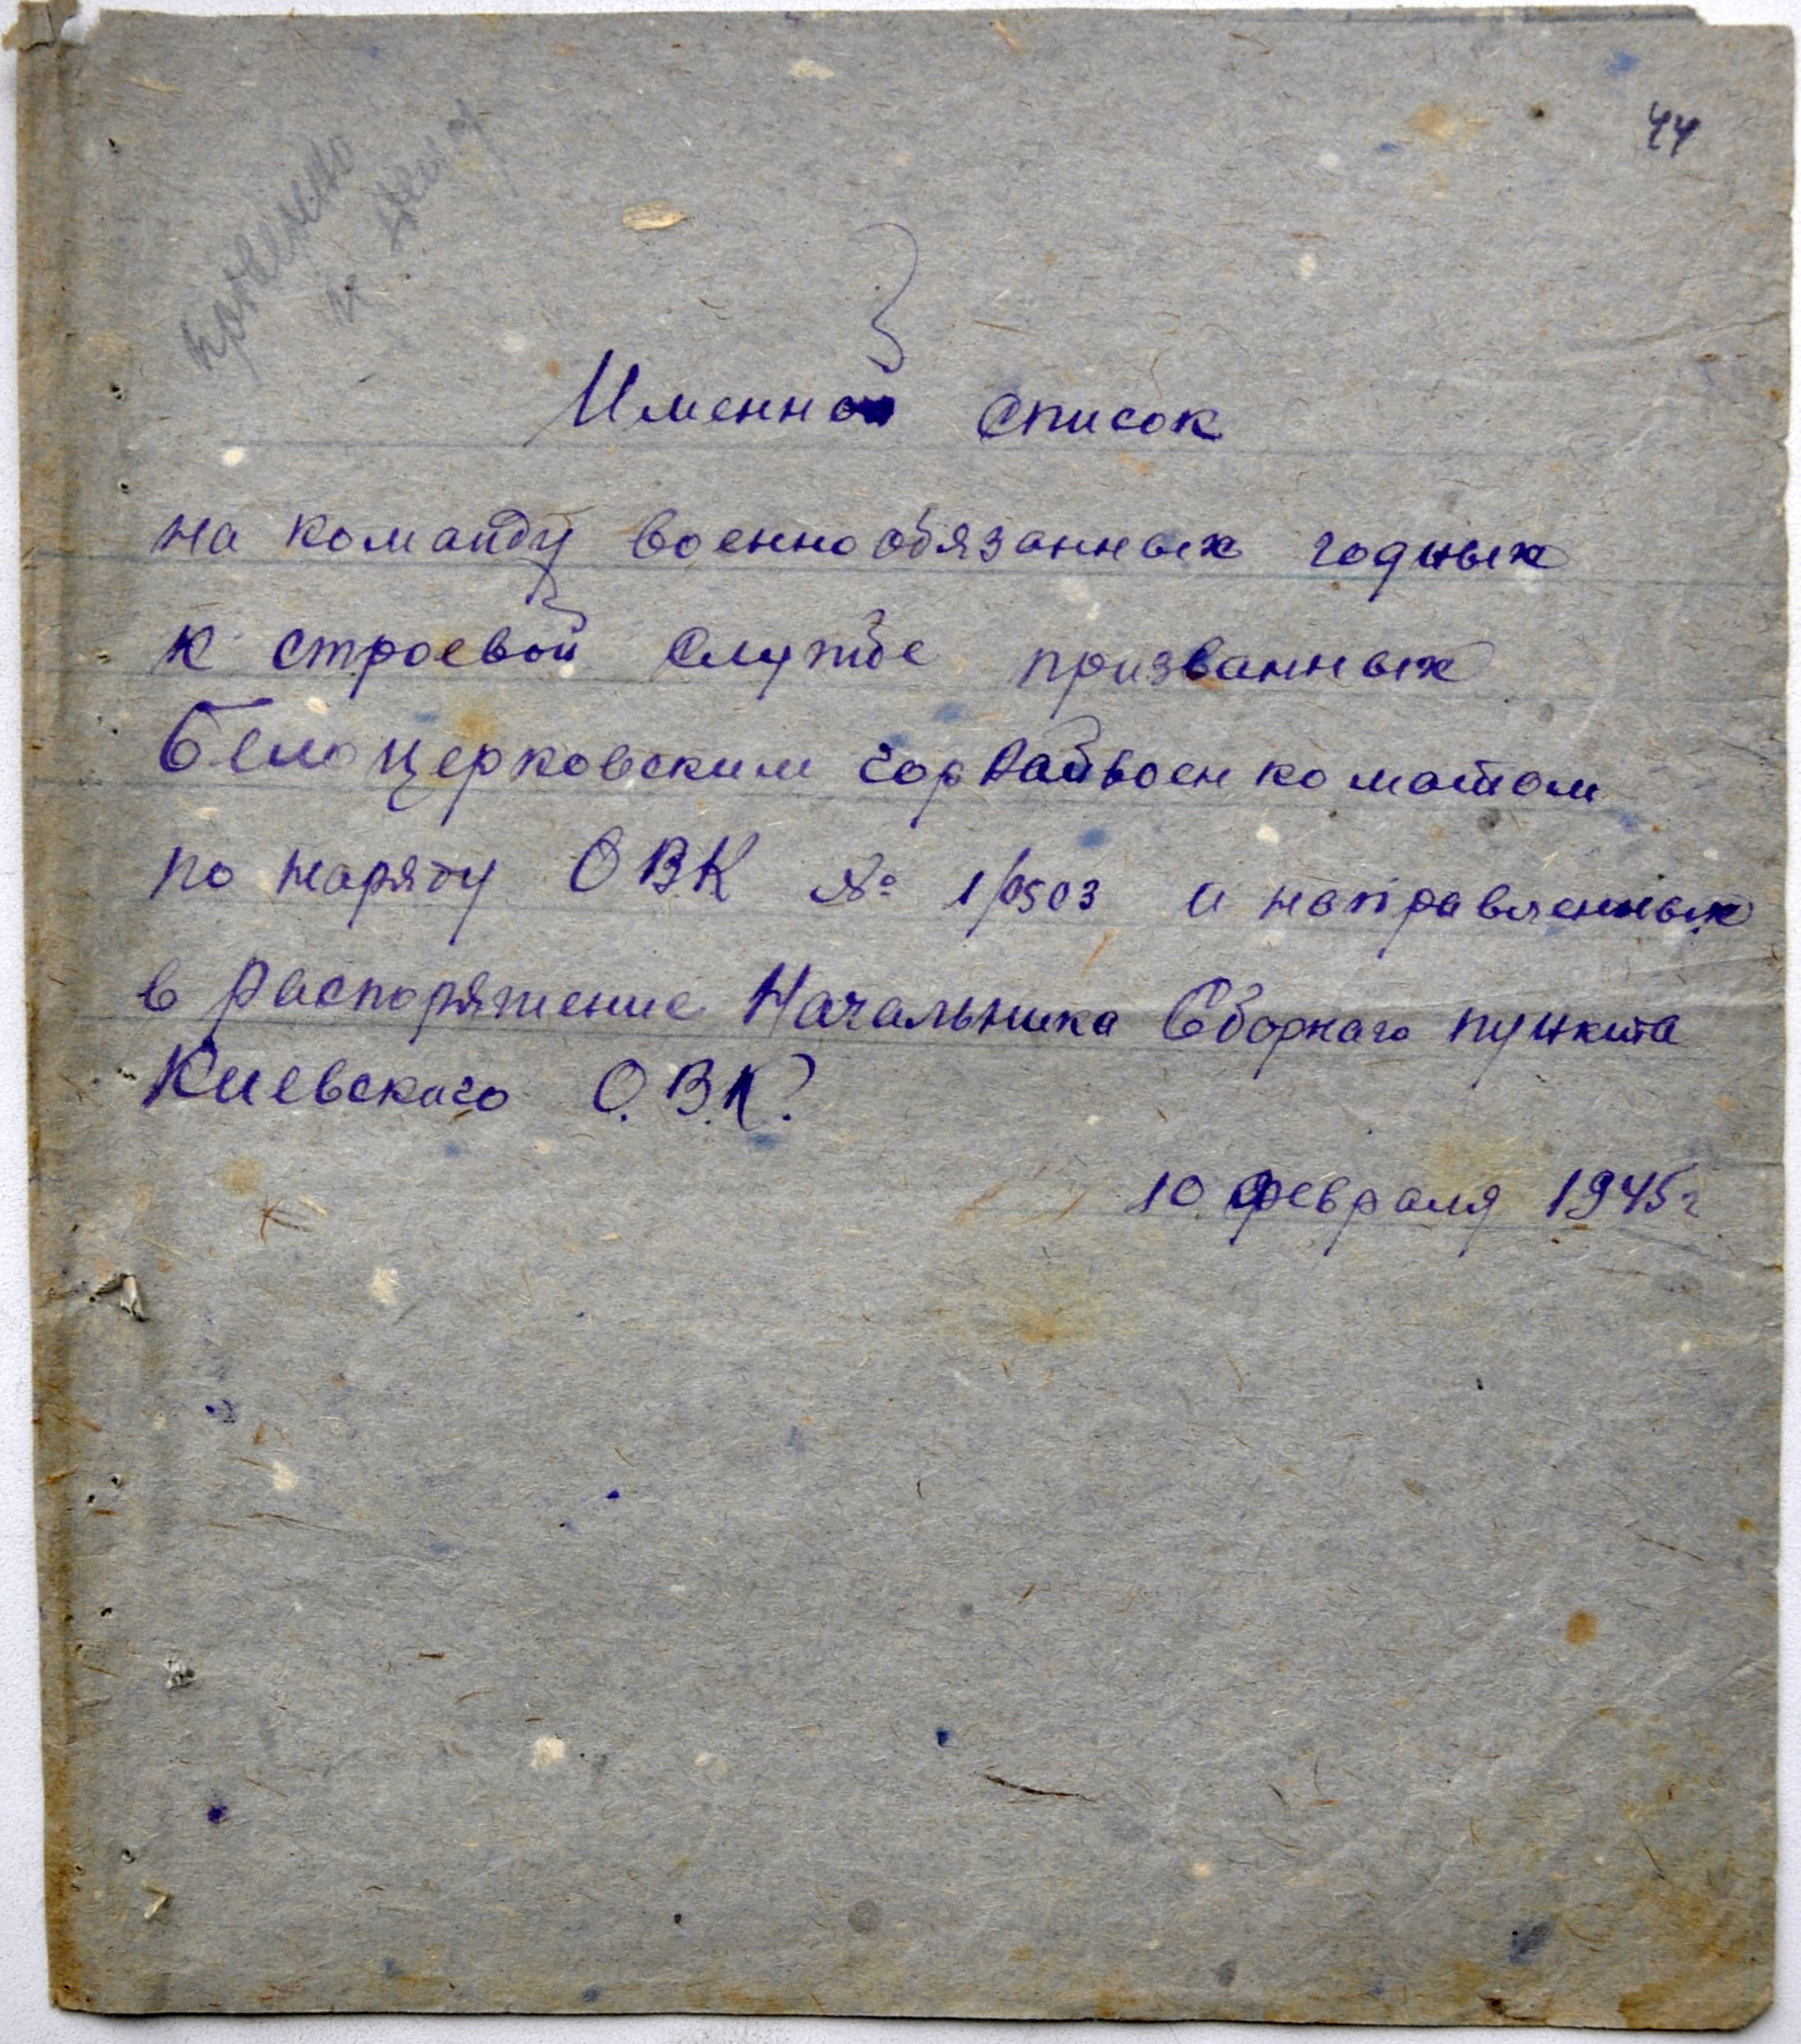 44
Именной список
на команду военнообязанных годных
к строевой службе призванных
Белоцерковским горрайвоенкоматом
по наряду ОВК № 1/0503 и направленных
в распоряжение Начальника Сборнаго пункта
Киевскаго О.В.К.
10 февраля 1945 г